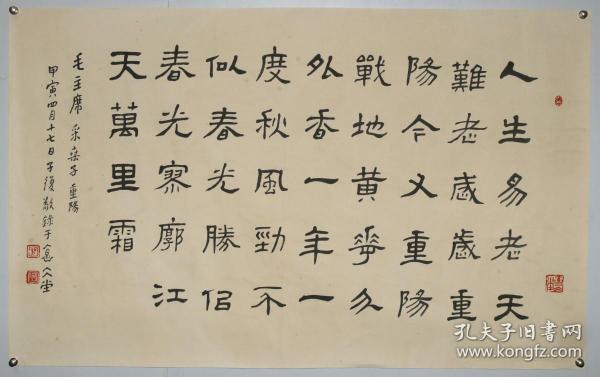 人生易老天
難老歲歲重
陽今又重陽
戰地黄華分
外香一年一
度秋風勁不
似春光勝佀
春光寥廓江
天萬里霜
毛主席 采桑子 重陽
甲寅四月十七日子復敬錄于堂
孔夫子旧书网
www.kongfz.com